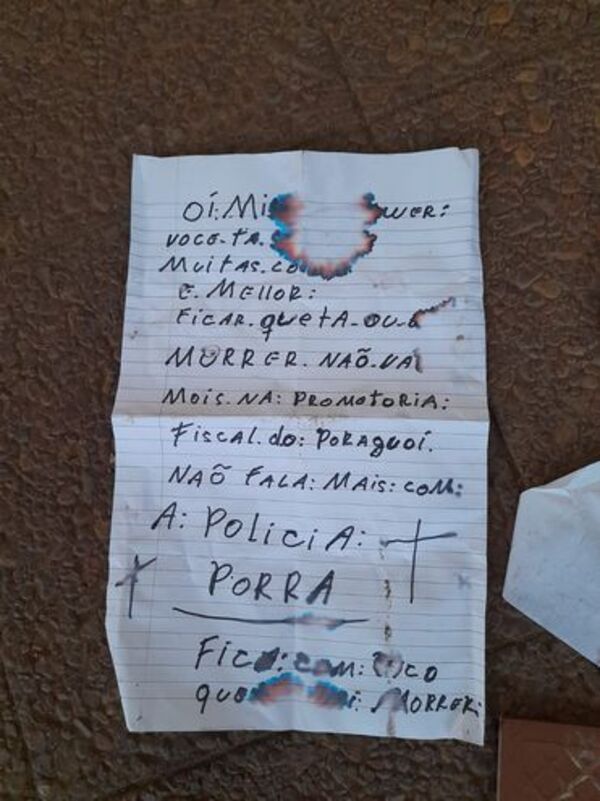 OÍ: Mi
WER:
VOCE-TA.
MUITAS. CO
E. MELLOR:
FICAR. QUETA-OU-
MORRER. NAÕ. VAI
MOIS. NA: PROMOTORIA:
FISCAL. do: PORAGUOÍ.
NAÕ FALA: MAIS: COM:
A: POLICIA:
PORRA
COM:
MORRER: